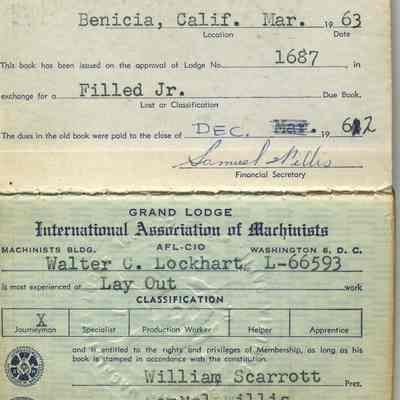 Benicia, Calif. Mar. 1963
Location Date
This book has been issued on the approval of Lodge No. 1687, in
exchange for a Filled Jr. Due Book.
Lost or Classification
The dues in the old book were paid to the close of DEC. Mar. 19 62
Samuel Willis
Financial Secretary
GRAND LODGE
International Association of Machinists
MACHINISTS BLDG. AFL-CIO WASHINGTON 6, D. C.
Walter C. Lockhart, L-66593
Is most experienced at Lay Out work
CLASSIFICATION
X
Journeyman Specialist Production Worker Helper Apprentice
and is entitled to the rights and privileges of Membership, as long as his
book is stamped in accordance with the constitution.
William Scarrott Pres.